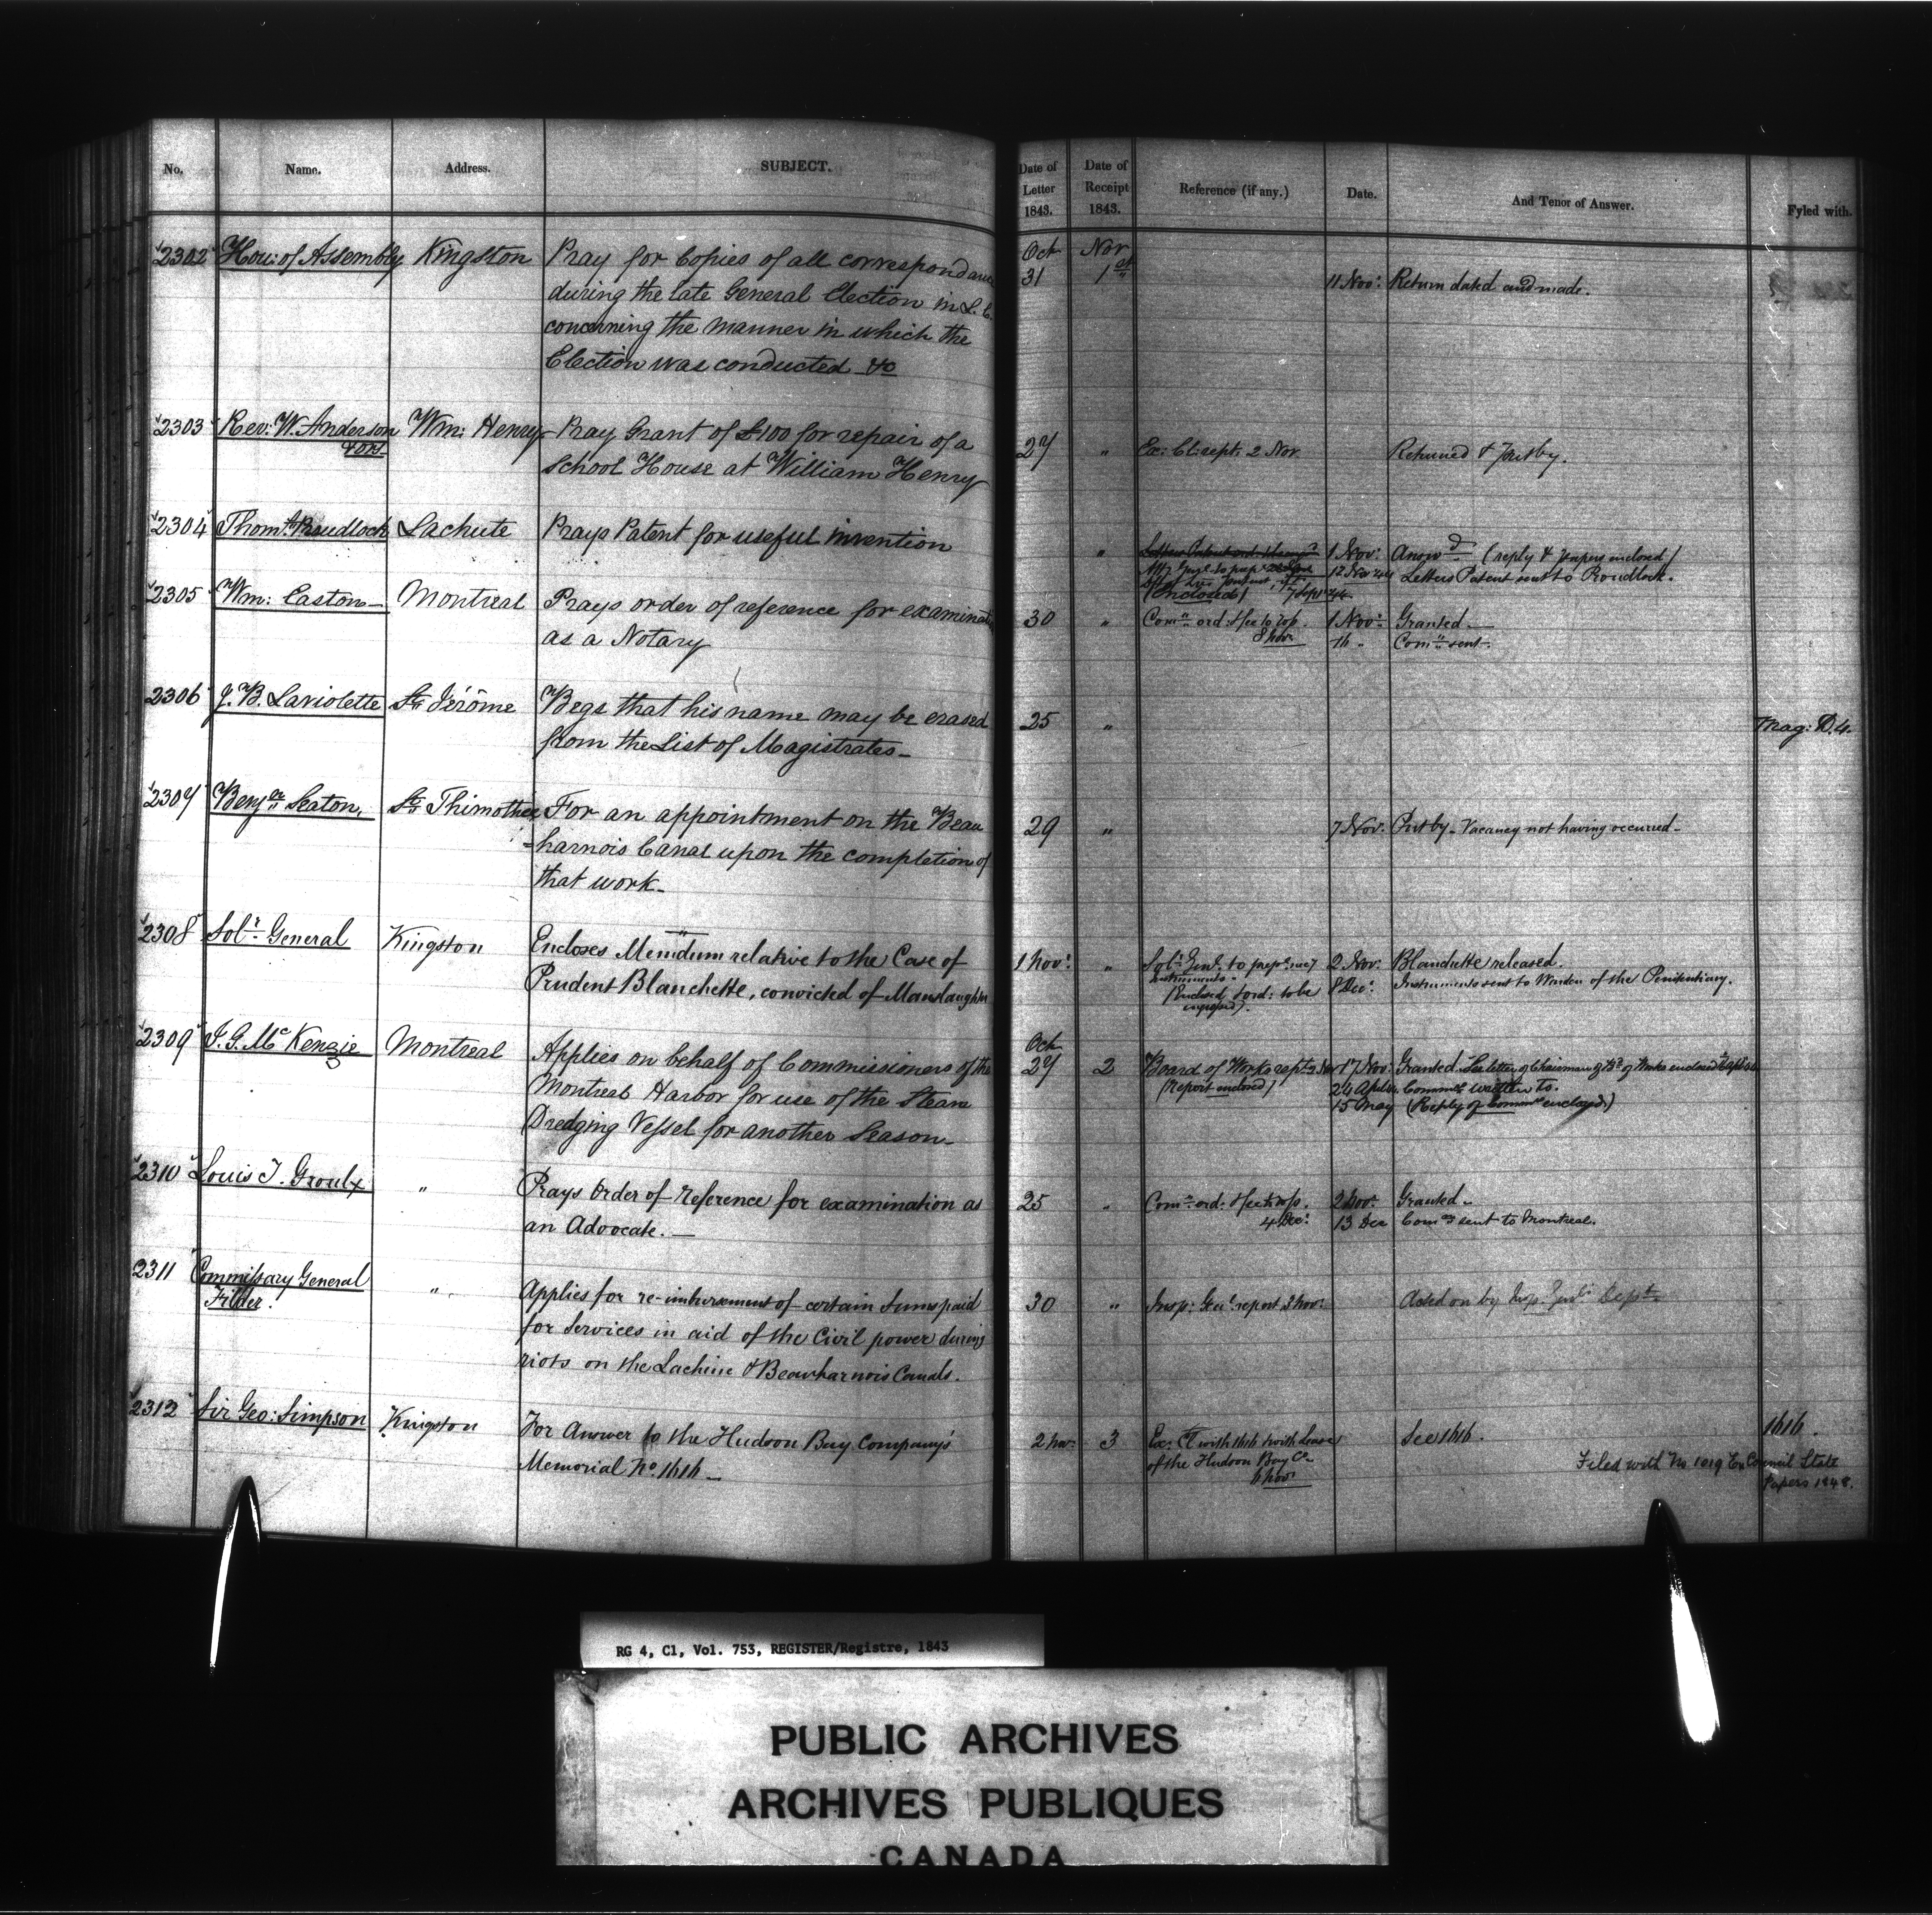 No. Name. Address. SUBJECT.
Date of Letter 1843. Date of Receipt 1843. Reference (if any.) Date. And Tenor of Answer. Fyled with.
2302 Hou: of Assembly Kingston Pray for Copies of all correspondance
during the late General Election in L. C.
concerning the manner in which the
Election was conducted &c
Oct 31 Nov 1st 11 Nov: Return dated and made.
2303 Rev: W. Anderson Wm: Henry Pray Grant of £100 for repair of a
School House at William Henry
27 " Ex: Cl: rept. 2 Nov Returned & Putby.
2304 Thoms. Proudlock Lachute Prays Patent for useful invention
" 1 Nov: Answd (reply & papers enclored)
12 Nov 44 Letters Patent sent to Proudlock.
(Enclosed) 7 Sept 44
2305 Wm: Easton Montreal Prays order of reference for examination
as a Notary
30 " Comn ord: 1 Nov: Granted
8 Nov "Comn sent.
2306 J. B. Laviolette St. Jérôme Begs that his name may be erased
from the List of Magistrates
25 " Mag: D. 4.
2307 Benjn Seaton, St. Thimothee For an appointment on the Beau
=harnois Canal upon the completion of
that work
29 " 7 Nov: Put by - Vacancy not having occurred
2308 Solr. General Kingston Encloses Memdum relative to the Case of
Prudent Blanchette, convicted of Manslaughter
1 Nov: " Solr Genl. to prepe. necy 2 Nov: Blanchette released.
instruments 8 Dec: Instruments sent to Warden of the Penitentiary.
(Enclosed & ord: to be
engrossed).
2309 J. G. McKenzie Montreal Applies on behalf of Commissioners of the
Montreal Harbor for use of the Steam
Dredging Vessel for another Season
Oct 27 2 Board of Works rept 17 Nov: Granted. See letter of Chairman of Bd. of Works enclosed
(Report enclosed) 24 April Commrs. written to.
15 May (Reply of Commrs enclosed)
2310 Louis T. Groulx " Prays Order of Reference for examination as
an Advocate.
25 " Comn ord: 2 Nov: Granted
4 Dec: 13 Dec Comn sent to Montreal.
2311 Commissary General
Filder. " Applies for re-imbursement of certain Sums paid
for Services in aid of the Civil power during
riots on the Lachine & Beauharnois Canals.
30 " Insp: Genl. report 3 Nov: Acted on by Insp. Genls Dept.
2312 Sir Geo: Simpson Kingston For Answer to the Hudson Bay Company's
Memorial No. 1616
2 Nov: 3 Ex: Cl with 1616 & with Lease See 1616. 1616.
of the Hudson Bay Co Filed with No 1019 Ex Council State
6 Nov: Papers 1848.
RG 4, C1, Vol. 753, REGISTER/Registre, 1843
PUBLIC ARCHIVES
ARCHIVES PUBLIQUES
CANADA